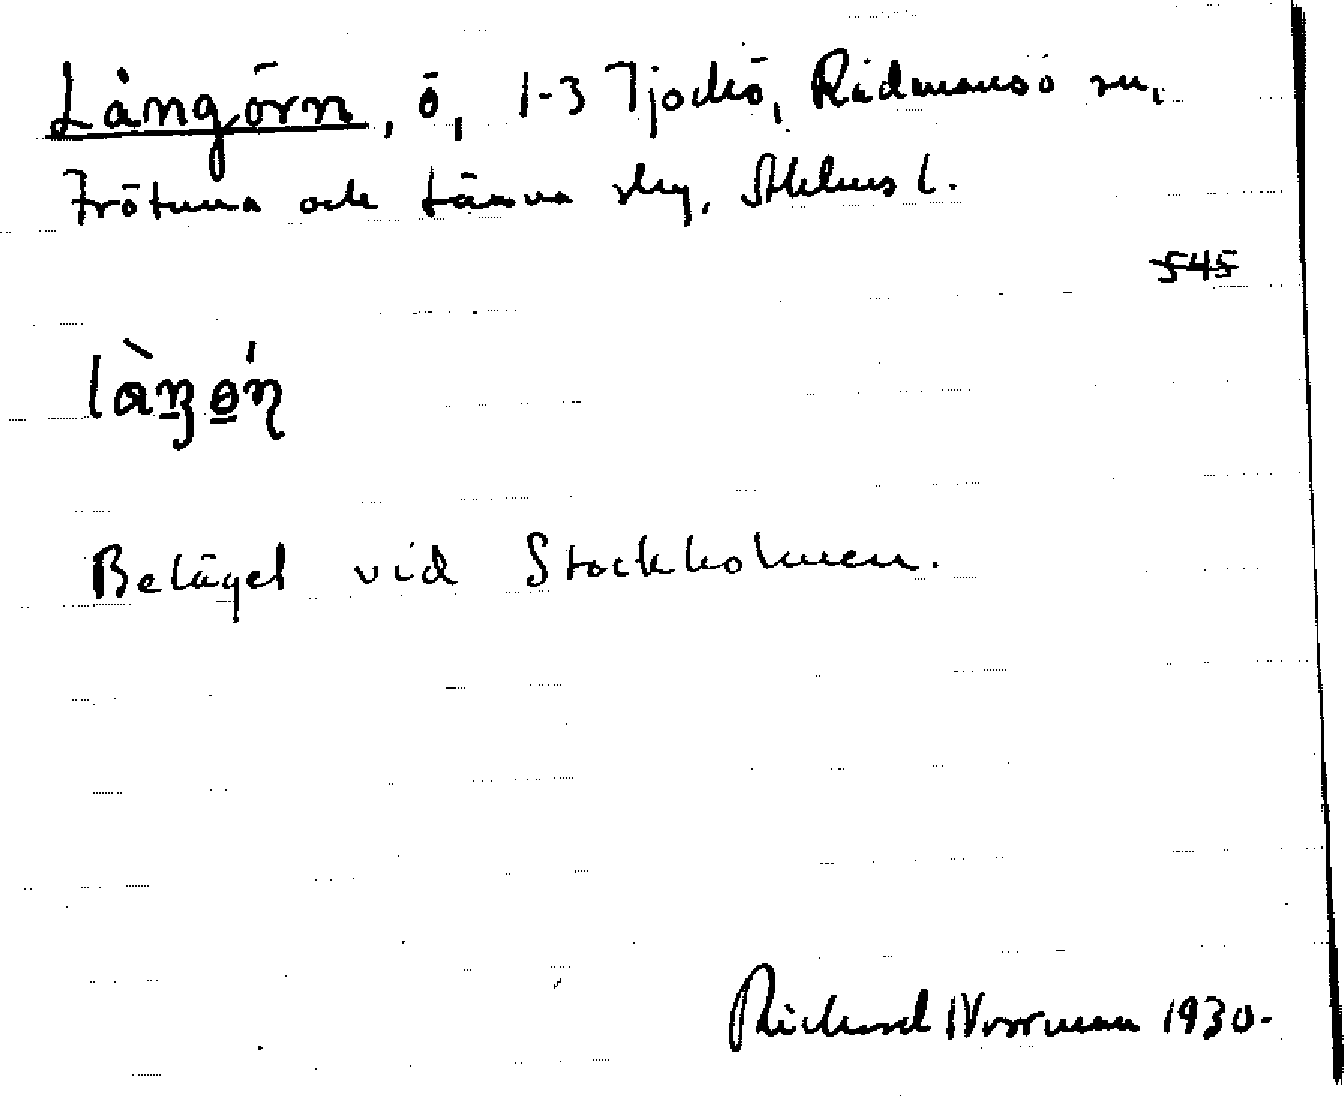 Långörn, ö, 1-3 Tjockö, Rådmansö sn,
Frötuna och Länna skg, Sthlms l.
545
làŋɵ́n
Beläget vid Stockholmen.
Rickard Norrman 1930.